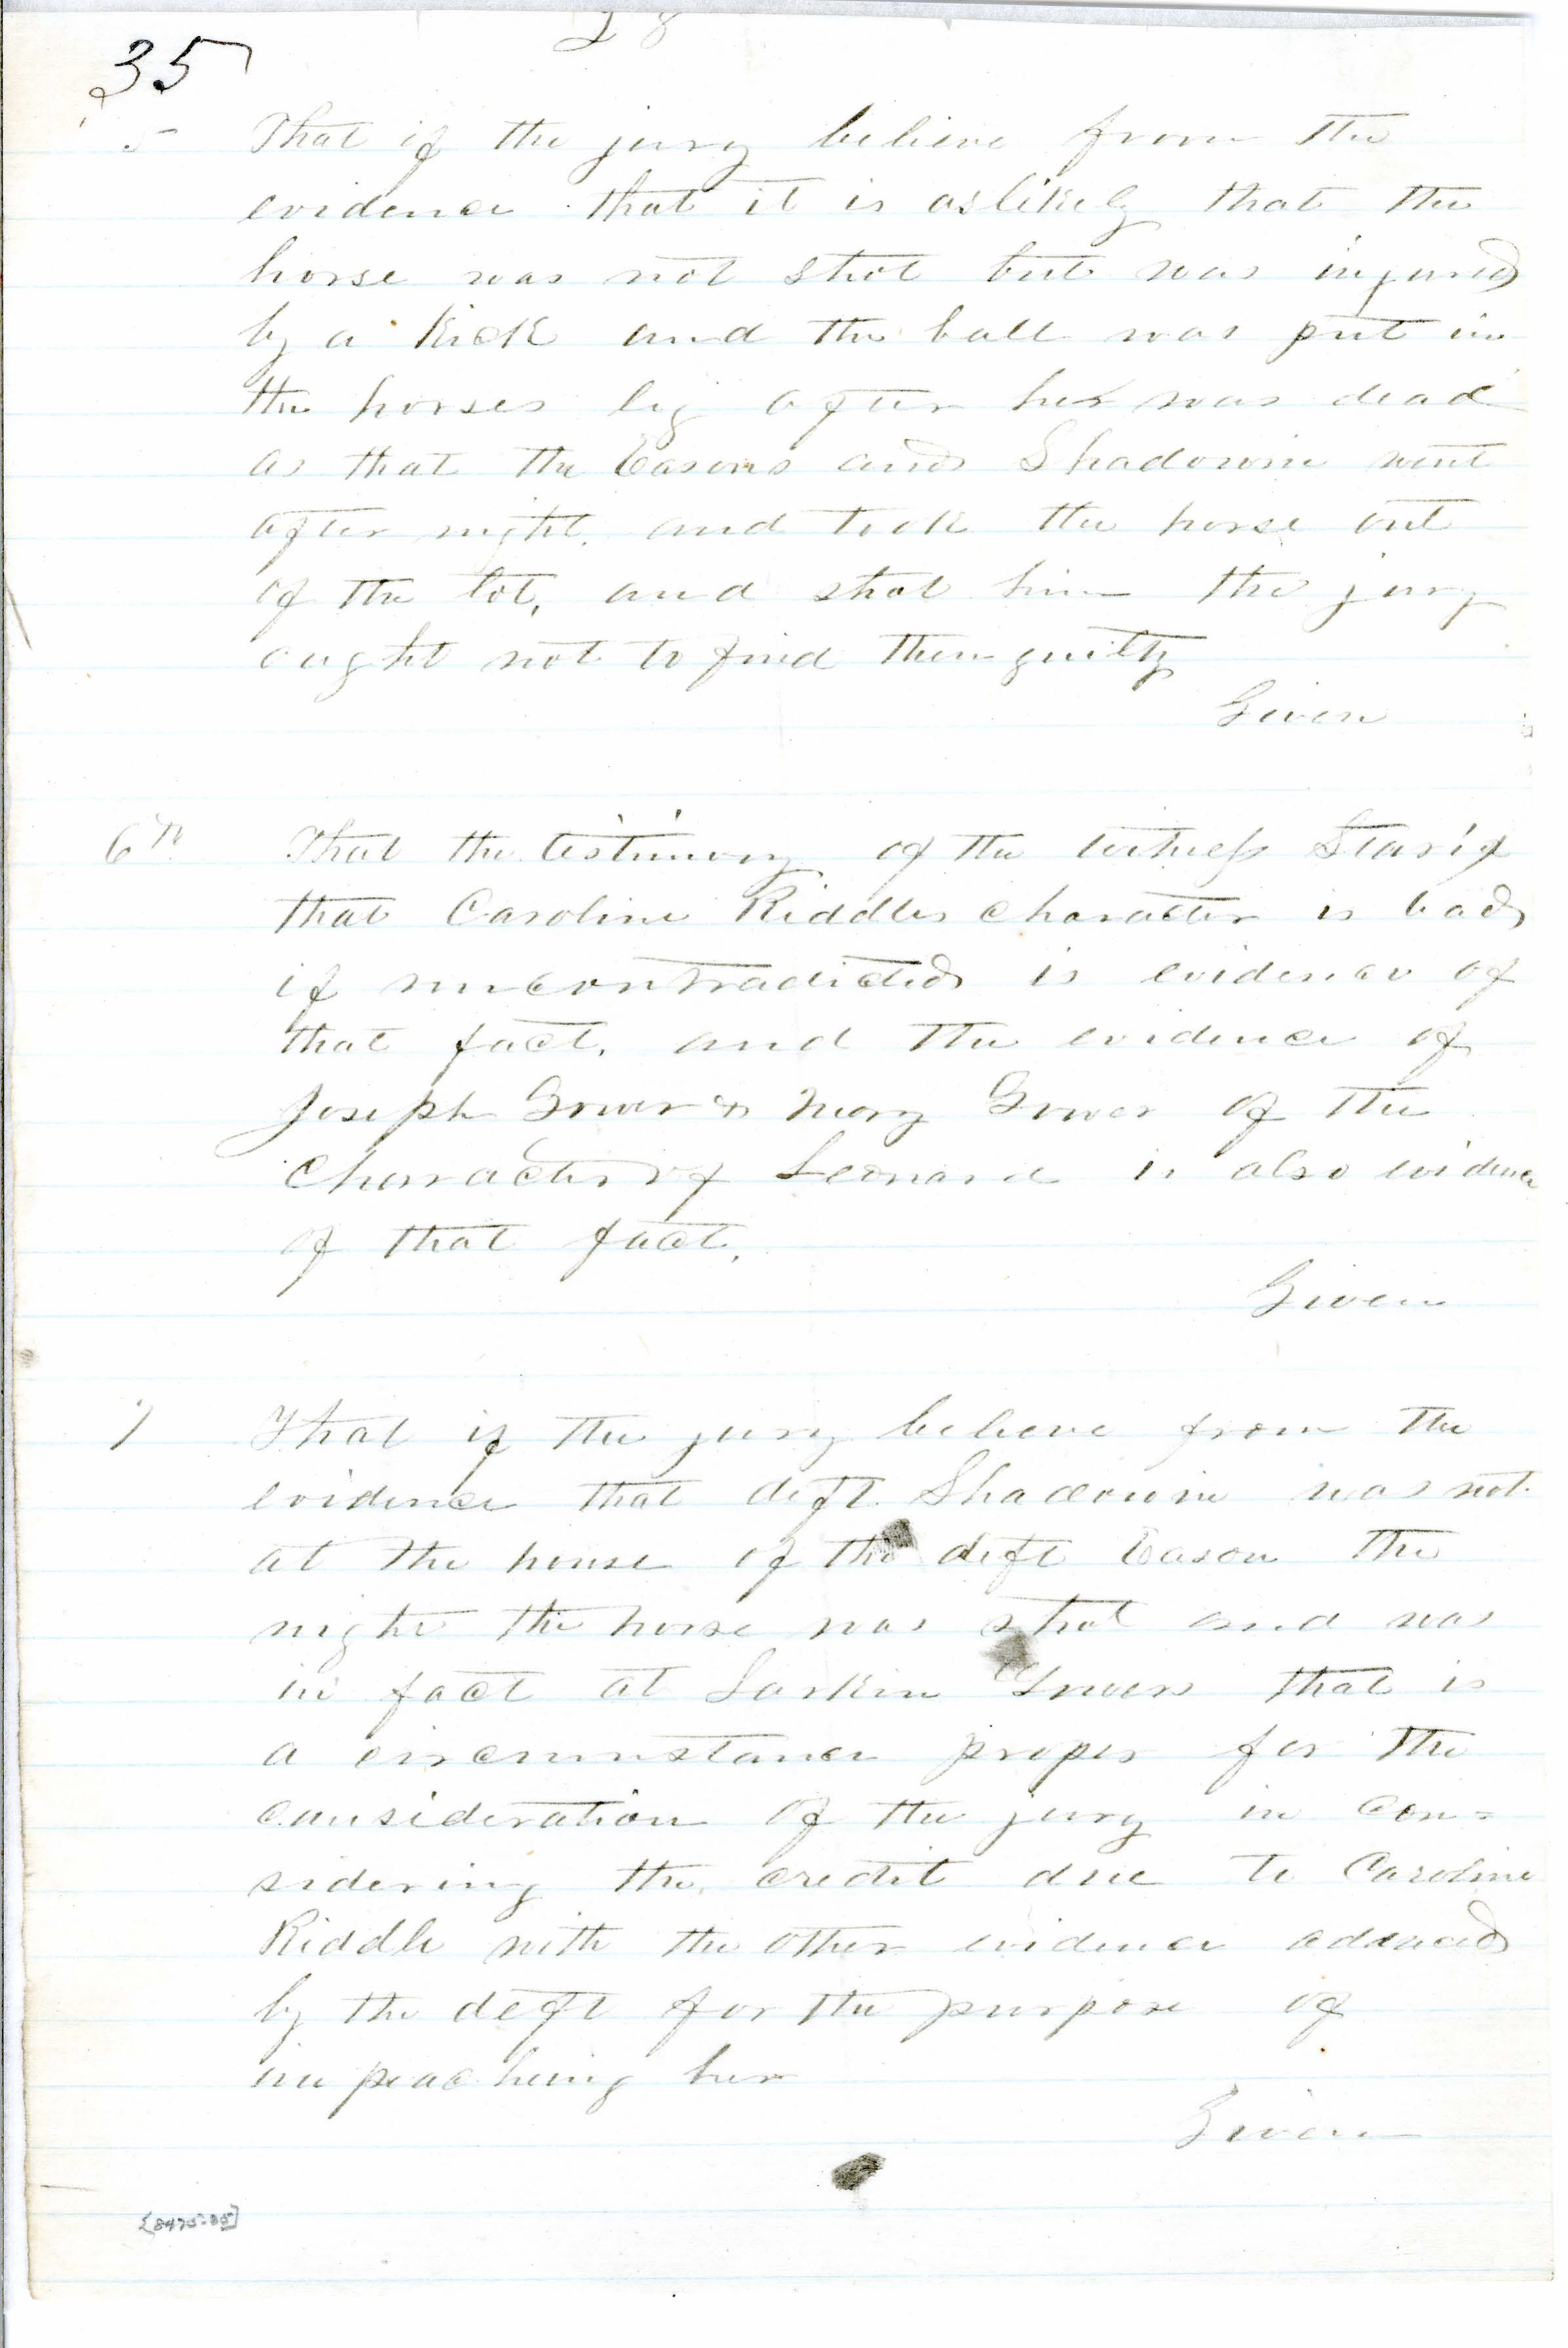 28
35
5 That if the jury believe from the
evidence that it is as likely that the
horse was not shot but was injured
by a kick and the ball was put in
the horses leg after her was dead
as that the Easons and Shadowin went
after night, and took the horse out
of the lot, and shot him the jury
ought not to find them guilty
Given
6th That the testimony of the witness
that Caroline Riddles character is bad,
if uncontradicted is evidence of
that fact, and the evidence of
Joseph Grower & Mary Grower of the
Character of Leonard is also evidence
of that fact.
Given
7 That if the jury believe from the
evidence that deft Shadowin was not
at the house of the deft Eason the
night the horse was shot and was
in fact at Larkin Growers that is
a circumstance proper for the
consideration of the jury in con=
sidering the credit due to Caroline
Riddle with the other evidence adduced
by the deft for the purpose of
impeaching her
Given
[8475-35]